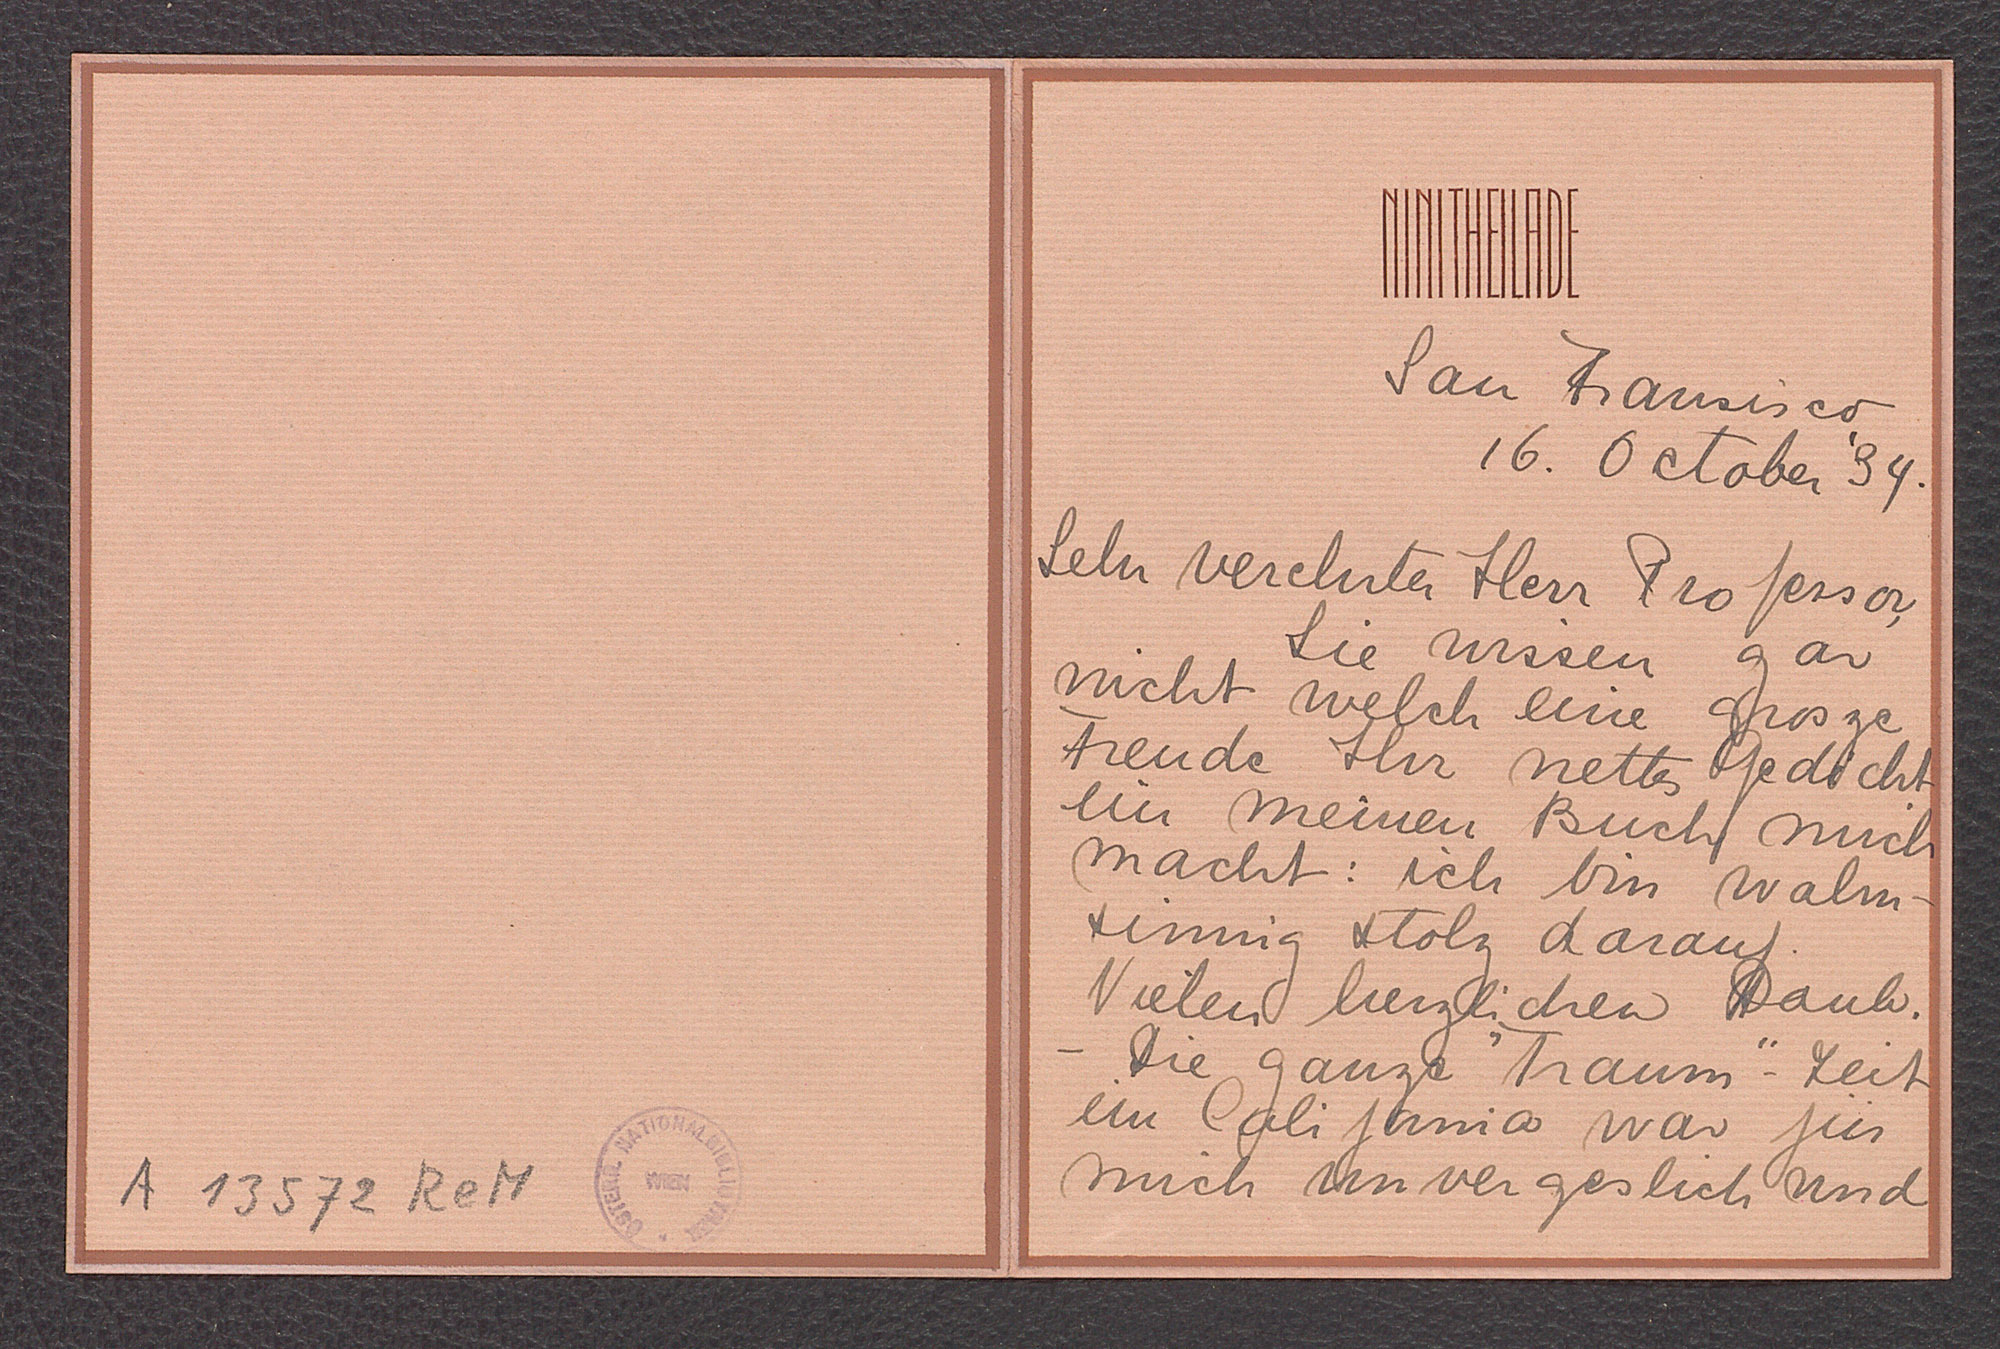 A 13572 ReM
ÖSTERR. NATIONALBIBLIOTHEK
WIEN
NINITHEILADE
San Fransisco
16. October '34.
Sehr verehrter Herr Professor,
Sie wissen gar
nicht welch eine grosze
Freude Ihr nettes Gedicht
in meinen Buch mich
macht: ich bin wahn-
sinnig stolz darauf.
Vielen herzlichen Dank.
- Die ganze "Traum"-Zeit
in California war für
mich unvergeslich und